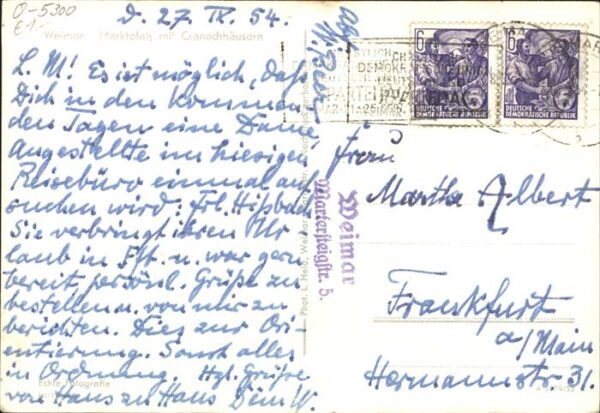 O-5300
E1-
D. 27. IX. 54.
Weimar. Marktplatz mit Cranachhäusern
L. M! Es ist möglich, daß
Dich in den kommen
den Tagen eine Dame,
Angestellte im hiesigen
Reisebüro einmal auf
suchen wird: Frl. Hißbach
Sie verbringt ihren Ur
laub in Fft. u. war gern
bereit, persönl. Grüße zu
bestellen u. von mir zu
berichten. Dies zur Ori-
entierung. Sonst alles
in Ordnung. Hzl. Grüße
von Haus zu Haus Dein W.
Echte Fotografie
Abs.
Weimar
Martersteigstr. 5.
6
DEUTSCHE
DEMOKRATISCHE REPUBLIK
6
DEUTSCHE
DEMOKRATISCHE REPUBLIK
Frau
Martha Albert
Frankfurt
a/Main
Hermannstr. 31.